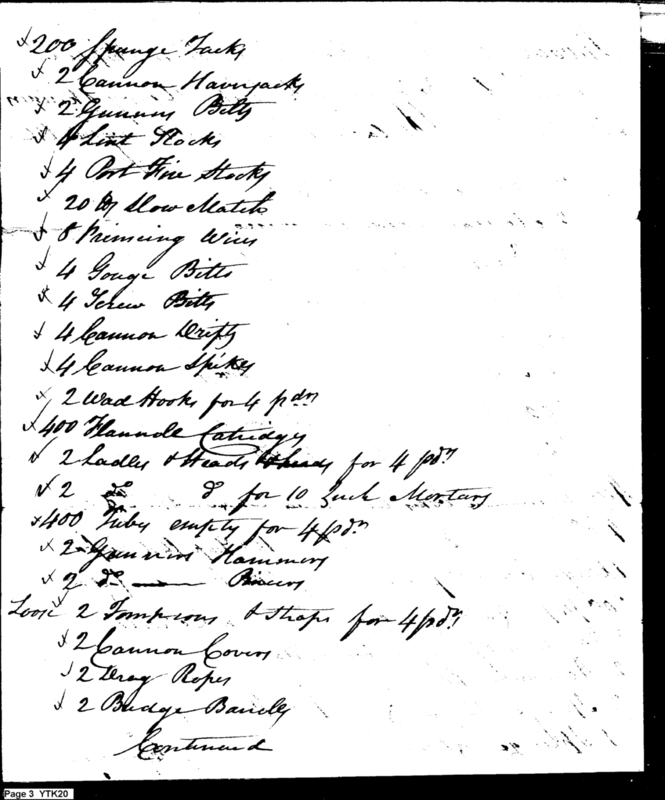 x 200 Spunge Tacks
x 2 Cannon Haversacks
x 2 Gunners Belts
x 4 Lint Stocks
x 4 Port Fire Stocks
x 20 lb Slow Match
x 8 Primeing Wires
x 4 Gouge Bitts
x 4 Screw Bitts
x 4 Cannon Drifts
x 4 Cannon Spikes
x 2 Wad Hooks for 4 pdrs
x 400 Flannell Catridges
x 2 Ladles & Heads for 4 pdrs
x 2 do do for 10 Inch Mortars
x 400 Tubes empty for 4 pdrs
x 2 Gunners Hammers
x 2 do Pincers
Loose x 2 Tompions & Straps for 4 pdrs
x 2 Cannon Covers
x 2 Drag Ropes
x 2 Budge Barells
Continued
Page 3 YTK20